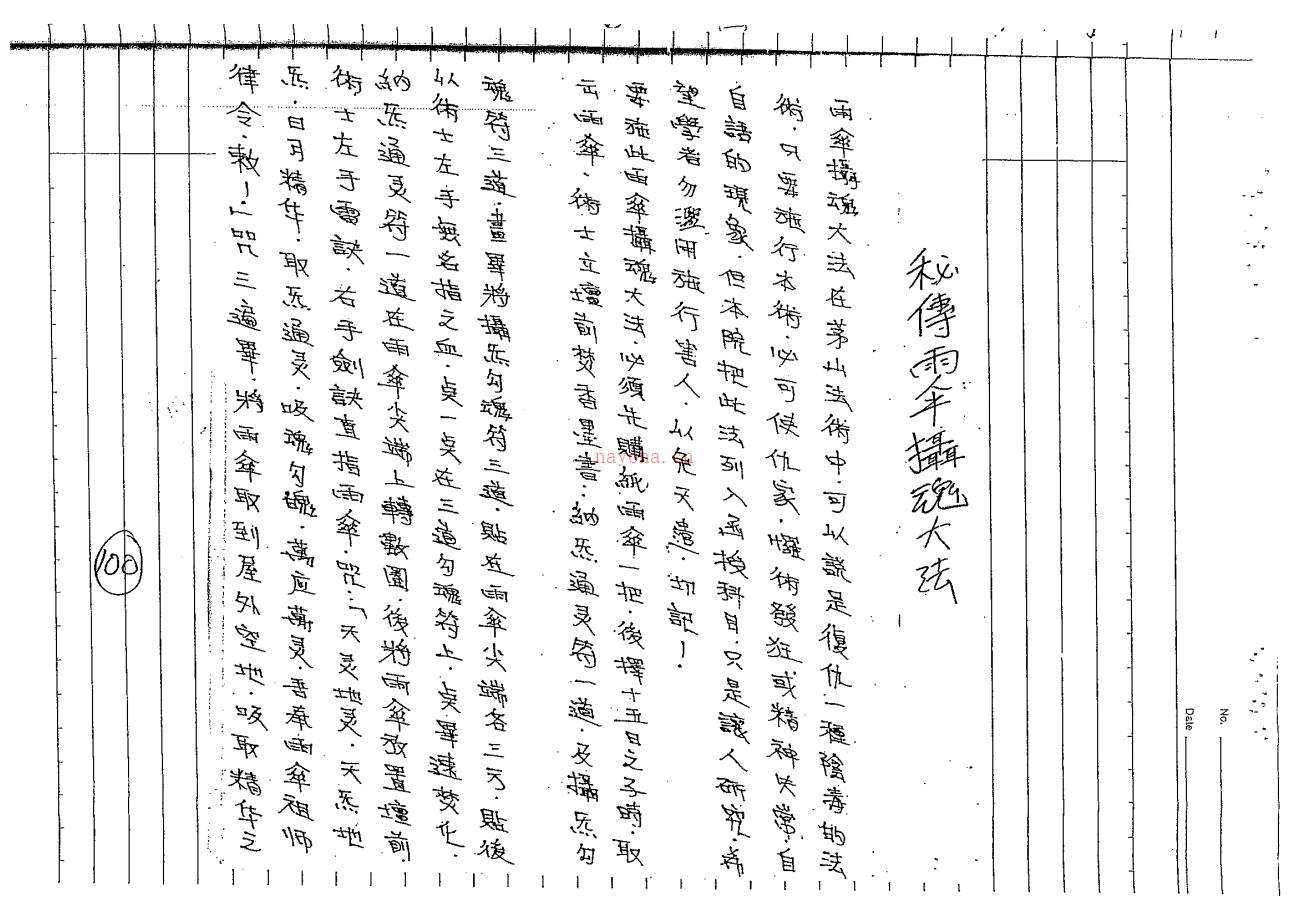 秘傳雨伞攝魂大法
雨傘攝魂大法在茅山法術中．可以説是復仇一種陰毒的法
術．只要施行本術．必可使仇家．懼術發狂．或精神失常．自
自語的現象．但本院把此法列入函授科目．只是讓人研究．希
望學者勿濫用施行害人．以免天譴．切記！．
要施此雨傘攝魂大法．必須先購紙雨傘一把．後擇十五日之子時．取
出雨傘．術士立壇前焚香墨書：納炁通灵符一道．及攝炁勾
魂符三道．畫畢將攝炁勾魂符三道．貼在雨傘尖端各三方．貼後
以術士左手無名指之血．点一点在三道勾魂符上．点畢速焚化．
納炁通灵符一道在雨傘尖端上轉數圈．後將雨傘放置壇前．
術士左手雷訣．右手劍訣直指雨傘．咒：「天灵地灵．天炁地
炁．日月精华．取炁通灵．吸魂勾魂．萬应萬灵．吾奉雨傘祖师
律令．敕！」咒三遍畢．將雨傘取到屋外空地．吸取精华之
100
No.
Date
nayona.cn